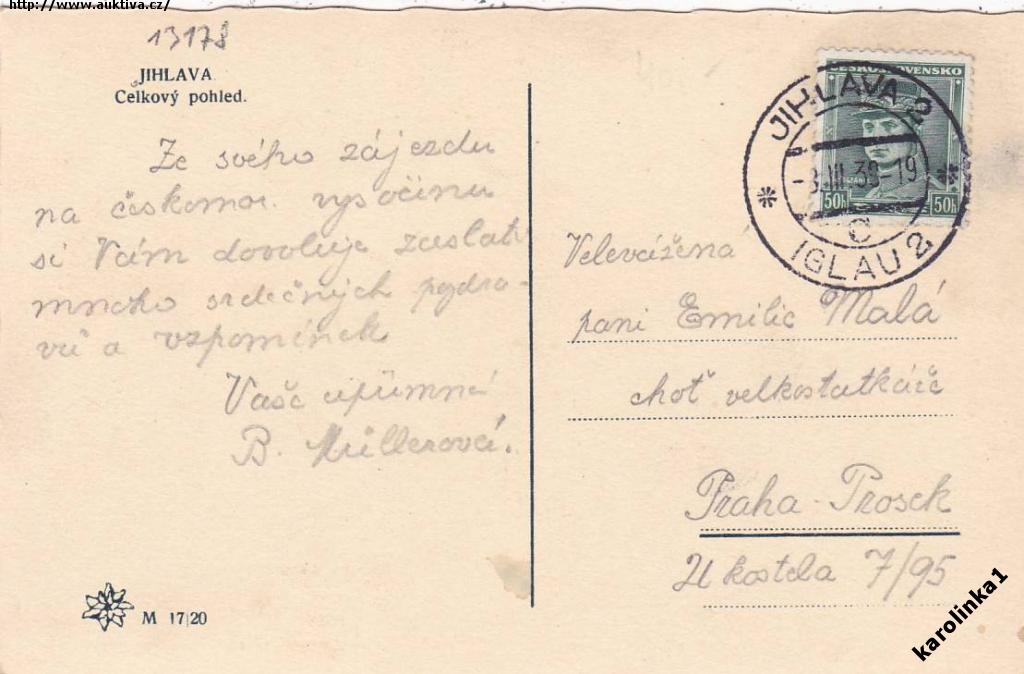 http://www.auktiva.cz/
13178
JIHLAVA
Celkový pohled.
Ze svého zájezdu
na českomor. vysočinu
si Vám dovoluje zaslat
mnoho srdečných pozdra-
vů a vzpomínek
Vaše upřímná
B. Müllerová.
M 17|20
ČESKOSLOVENSKO
50h 50h
JIHLAVA 2
-8.III.38-19
C
IGLAU 2
Velevážená
paní Emilie Malá
choť velkostatkáře
Praha-Prosek
U kostela 7/95
karolinka1